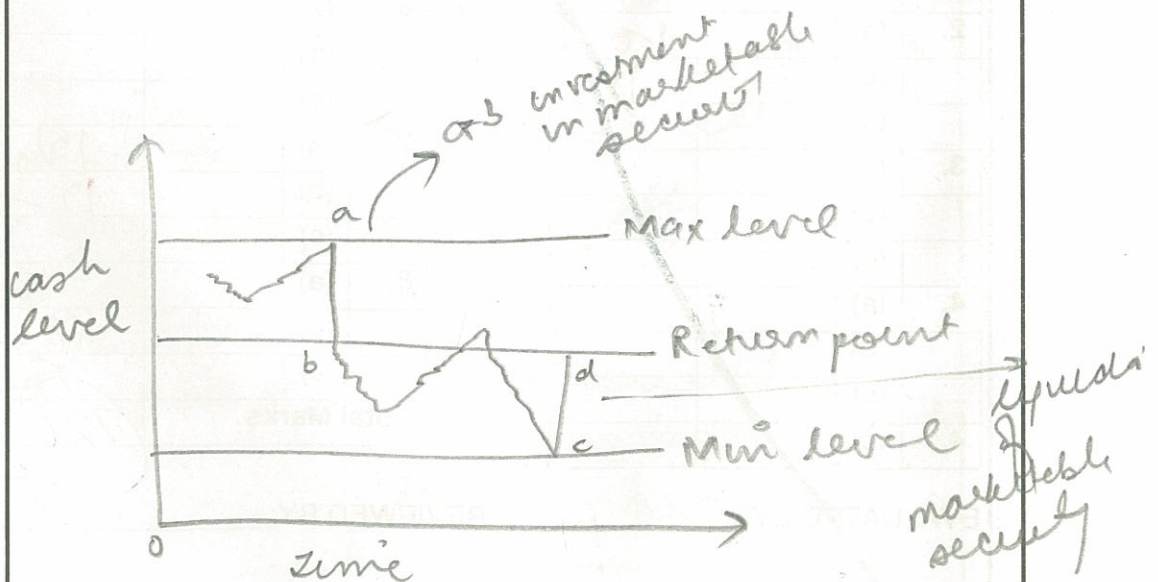 a-b investment
in marketable
security
a
Max level
cash
level
b
Return point
d
c
Min level
liquida
of
marketable
security
0
Time